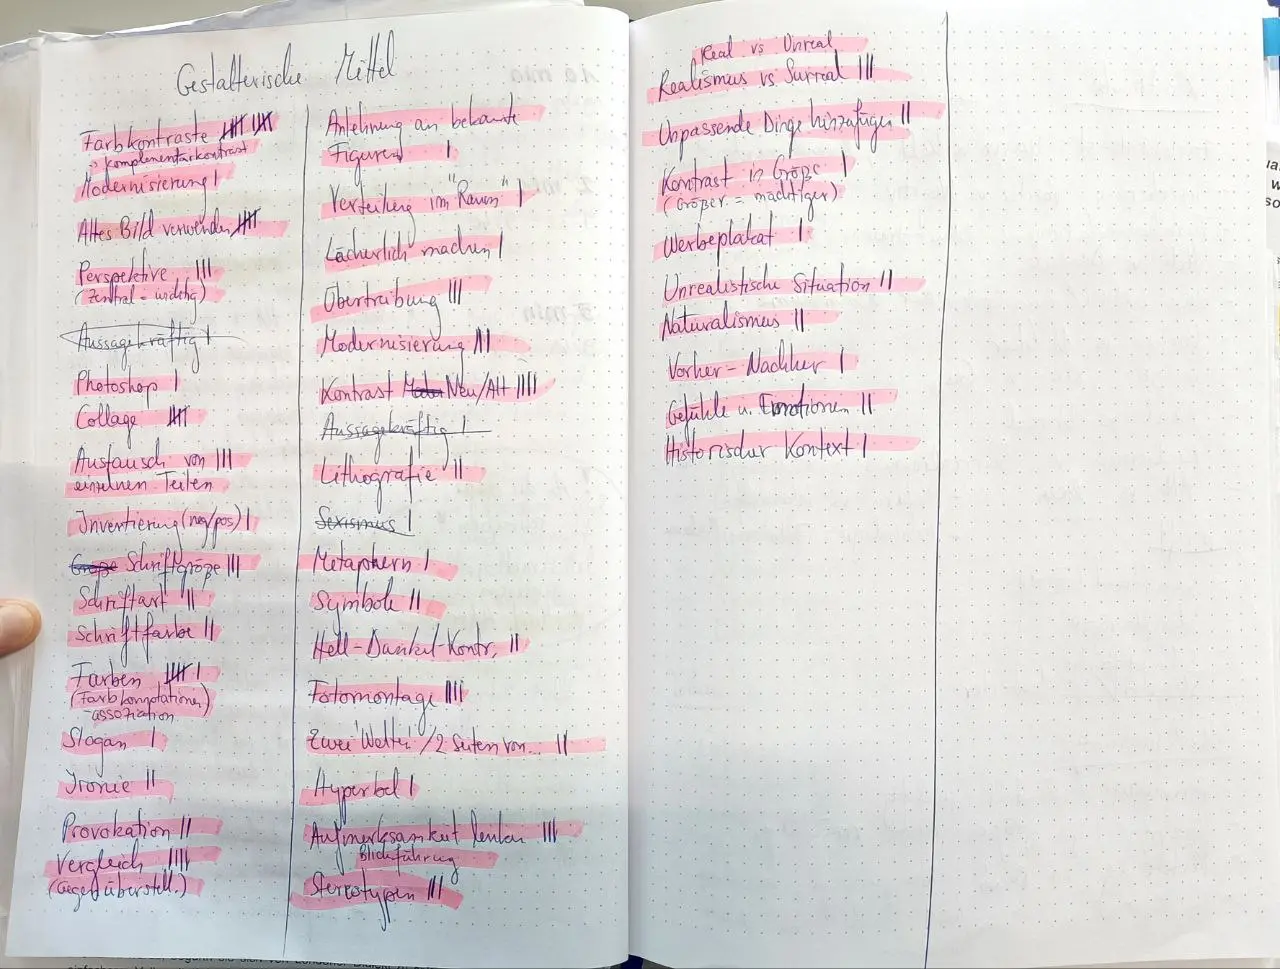 Gestalterische Mittel
Farbkontraste |||| ||||
→ Komplementärkontrast
Modernisierung |
Altes Bild verwenden ||||
Perspektive |||
(Zentral = wichtig)
Aussagekräftig |
Photoshop |
Collage ||||
Austausch von |||
einzelnen Teilen
Invertierung (neg/pos) |
Größe Schriftgröße |||
Schriftart ||
Schriftfarbe ||
Farben |||| |
(Farbkonnotationen)
-assoziation
Slogan |
Ironie ||
Provokation ||
Vergleich ||||
(Gegenüberstell.)
Anlehnung an bekannte
Figuren |
Verteilung im "Raum" |
Lächerlich machen |
Übertreibung |||
Modernisierung |||
Kontrast Neu/Alt ||||
Aussagekräftig |
Lithografie ||
Sexismus |
Metaphern |
Symbole ||
Hell-Dunkel-Kontr. ||
Fotomontage ||||
Zwei Welten / 2 Seiten von... ||
Hyperbel |
Aufmerksamkeit lenken |||
Blickführung
Stereotypen |||
Real vs Unreal
Realismus vs Surreal |||
Unpassende Dinge hinzufügen ||
Kontrast in Größe |
(Größer = mächtiger)
Werbeplakat |
Unrealistische Situation ||
Naturalismus ||
Vorher-Nachher |
Gefühle u. Emotionen ||
Historischer Kontext |